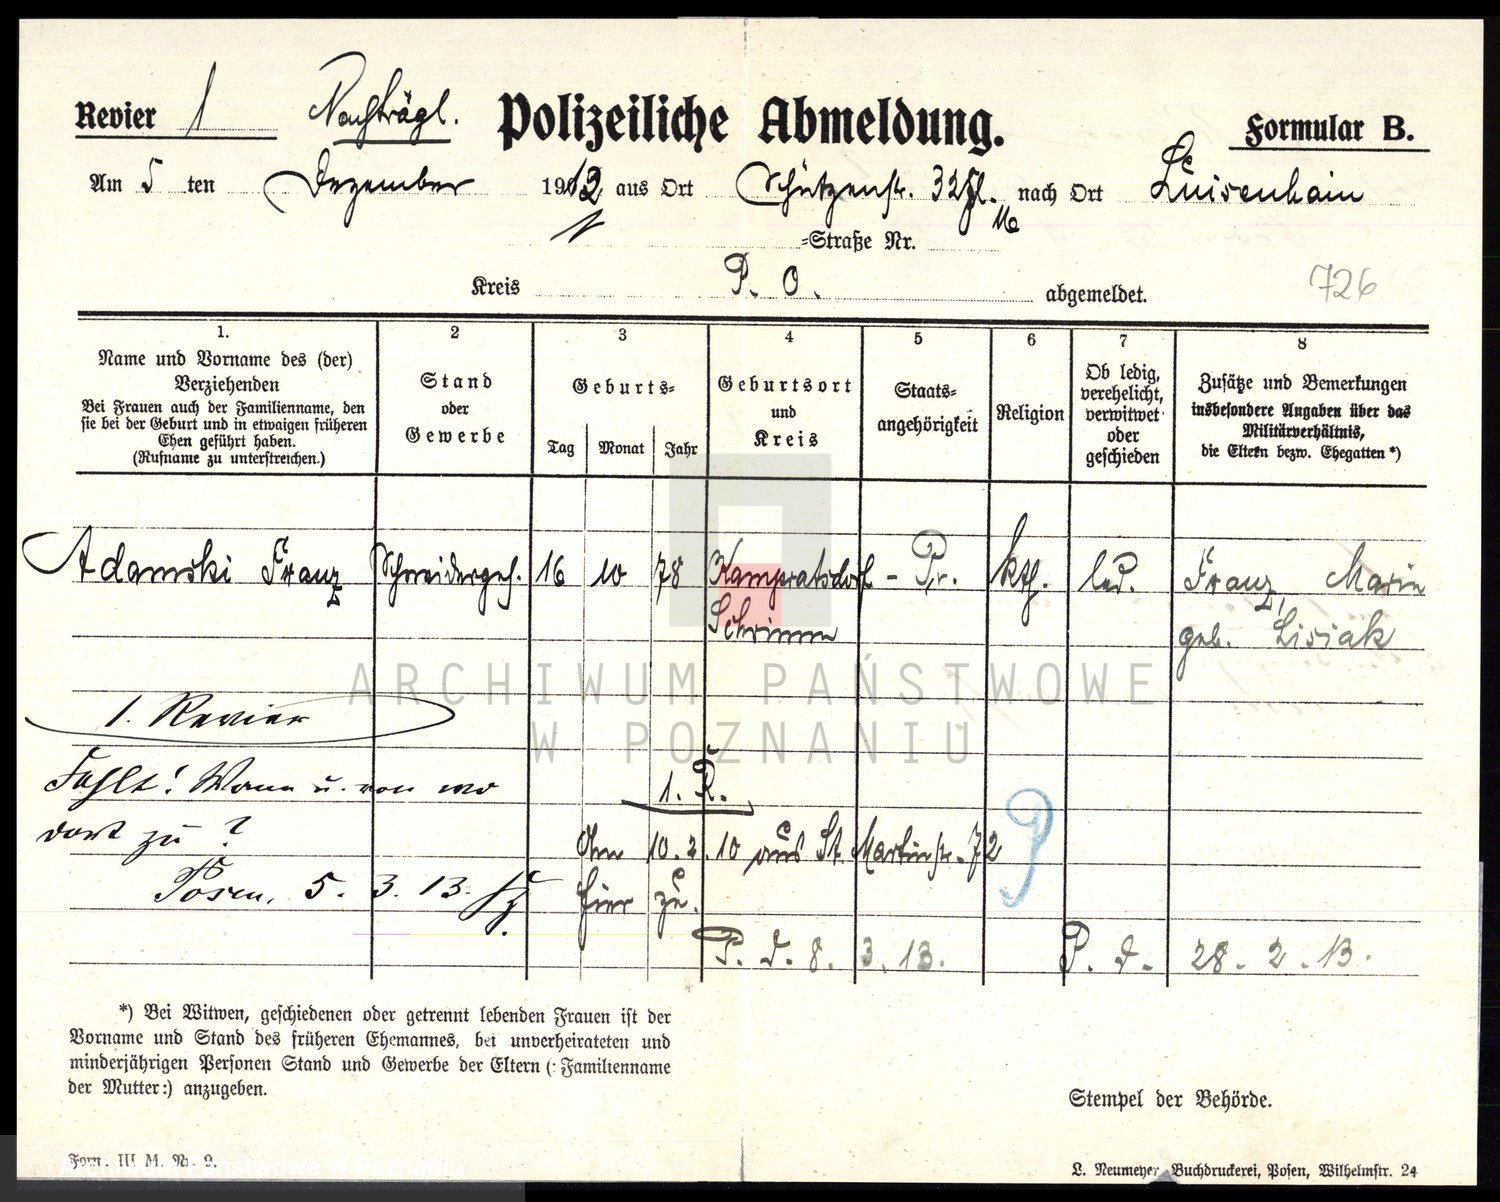 Revier 1 Nachträgl. Polizeiliche Abmeldung. Formular B.
Am 5 ten Dezember 1912 aus Ort Schützenstr. 32 nach Ort Luisenhain
=Straße Nr.
Kreis P. O. abgemeldet.
726
1. 2 3 4 5 6 7 8
Name und Vorname des (der)
Verziehenden
Bei Frauen auch der Familienname, den
sie bei der Geburt und in etwaigen früheren
Ehen geführt haben.
(Rufname zu unterstreichen.)
Stand
oder
Gewerbe
Geburts=
Tag Monat Jahr
Geburtsort
und
Kreis
Staats=
angehörigkeit
Religion
Ob ledig,
verehelicht,
verwitwet
oder
geschieden
Zusätze und Bemerkungen
insbesondere Angaben über das
Militärverhältnis,
die Eltern bezw. Ehegatten *)
Adamski Franz Schneiderges. 16 10 78 - Pr. kth. led. Franz, Marie
Schrimm geb. Lisiak
ARCHIWUM PAŃSTWOWE
W POZNANIU
1. Revier
Fehlt! Wann u. von wo
dort zu?
Posen, 5. 3. 13.
1. R.
Am 10. 2. 10 aus St. Martinstr. 72
hier zu.
P. d. 8. 3. 13. P. d. 28. 2. 13.
*) Bei Witwen, geschiedenen oder getrennt lebenden Frauen ist der
Vorname und Stand des früheren Ehemannes, bei unverheirateten und
minderjährigen Personen Stand und Gewerbe der Eltern (: Familienname
der Mutter:) anzugeben.
Stempel der Behörde.
Form. III M. Nr. 9.
Archiwum Państwowe w Poznaniu
L. Neumeyer, Buchdruckerei, Posen, Wilhelmstr. 24